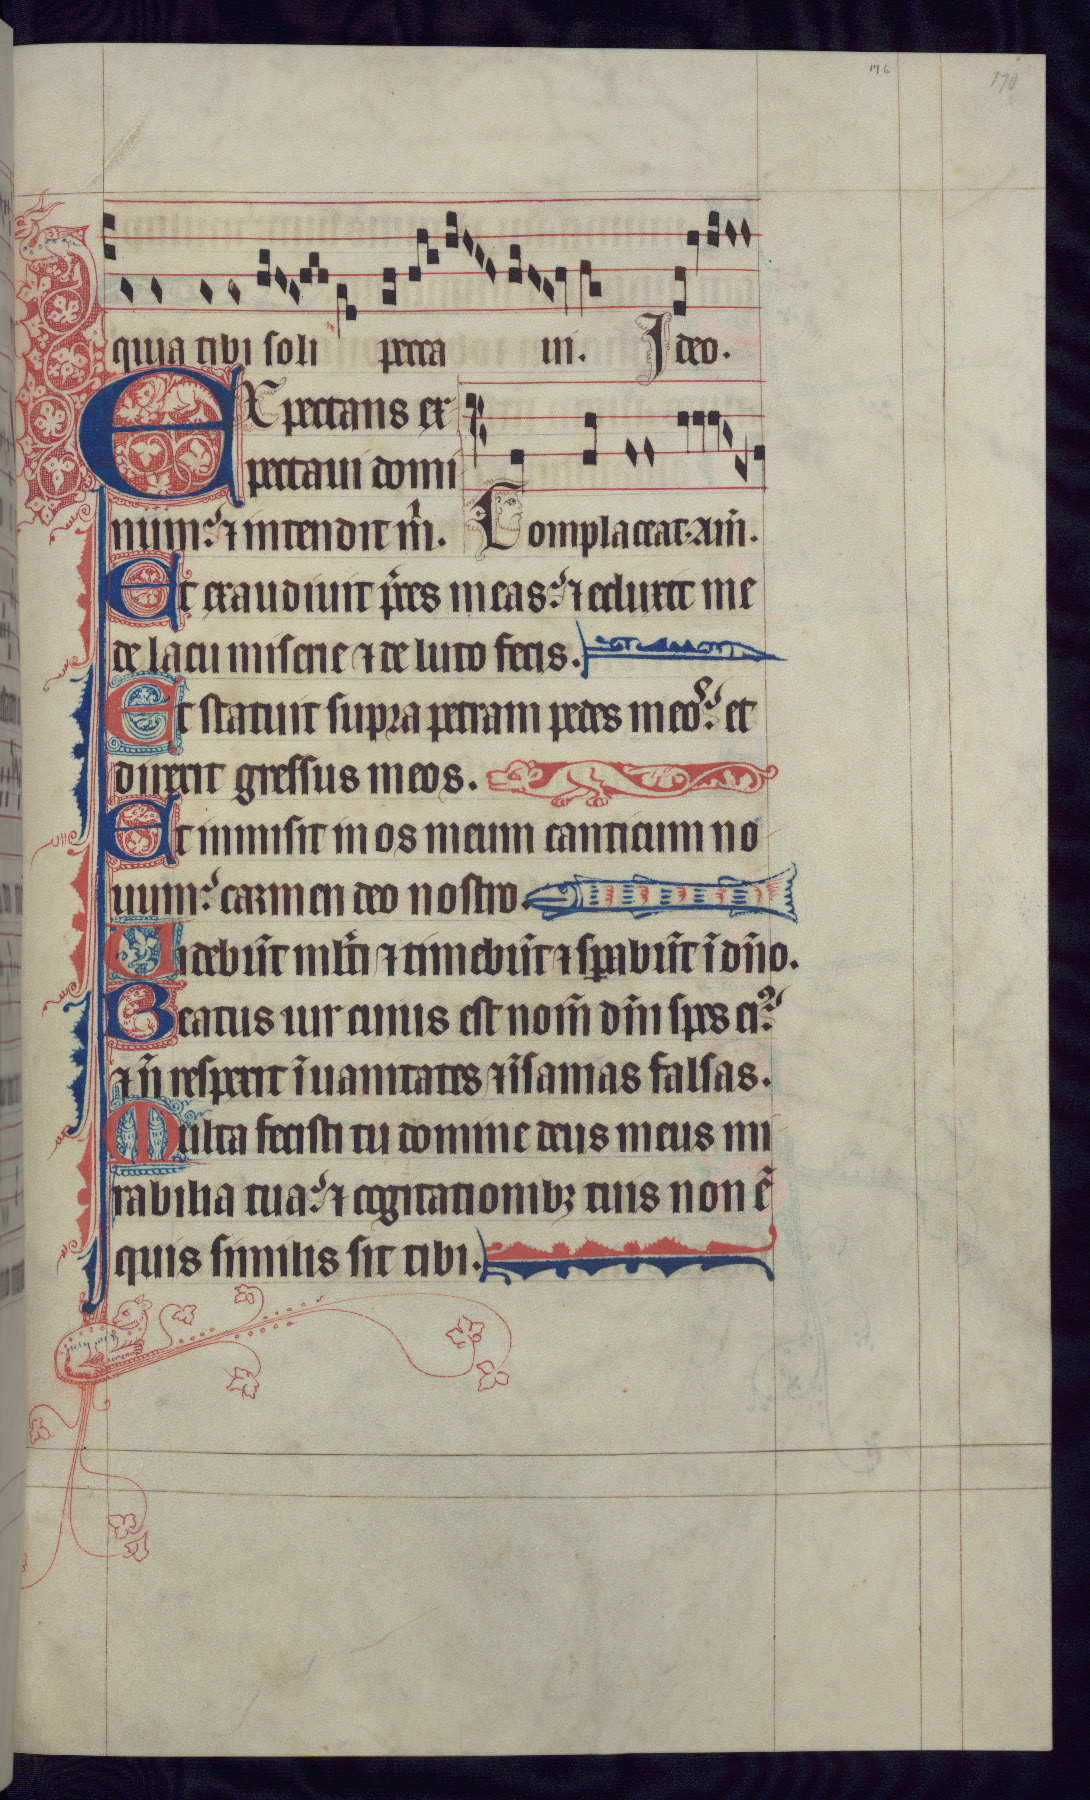 176
170
quia tibi soli pecca ui. Ideo.
EXpectans ex
pectaui domi
num: ⁊ intendit m̄. Complaceat. am̄.
Et exaudiuit p̄ces meas: ⁊ eduxit me
de lacu miserie ⁊ de luto fecis.
Et statuit supra petram pedes meos: et
direxit gressus meos.
Et inmisit in os meum canticum no
uum: carmen deo nostro.
Uidebūt ml̄ti ⁊ timebūt ⁊ sꝑabūt ī dño.
Beatus uir cuius est nom̄ dn̄i spes eiꝰ:
⁊ ñ respexit ī uanitates ⁊ īsanias falsas.
Multa fecisti tu domine deus meus mi
rabilia tua: ⁊ cogitationibꝫ tuis non ē
quis similis sit tibi.